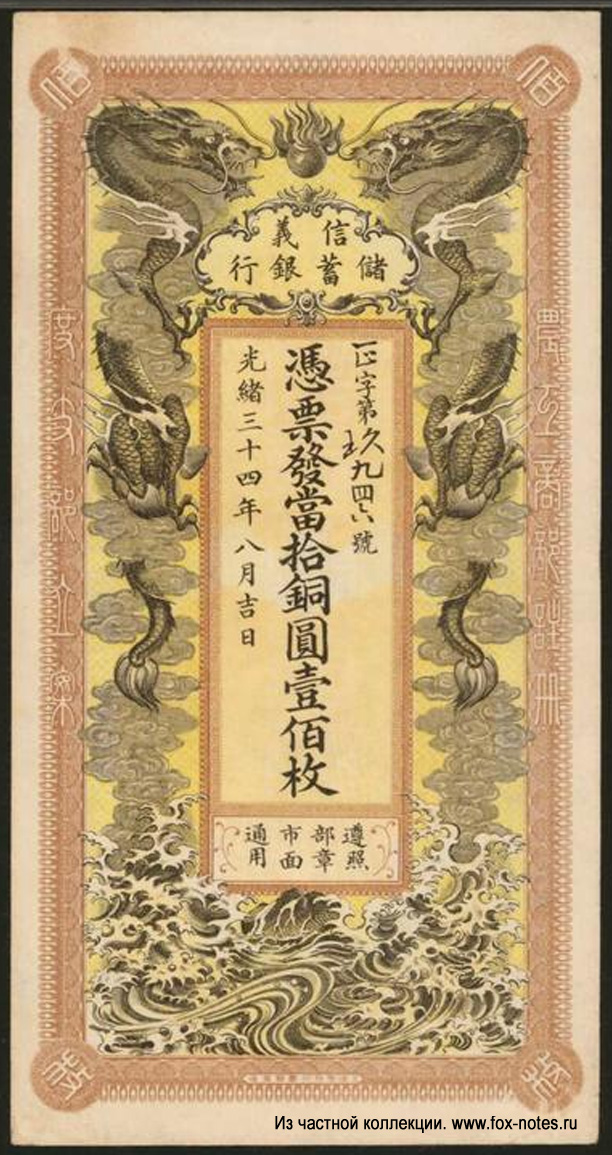 佰
佰
信義
儲蓄銀行
農工商部註冊
正字第玖九四六號
憑票發當拾銅圓壹佰枚
光緒三十四年八月吉日
度支部立案
遵照
部章
市面
通用
枚
枚
Из частной коллекции. www.fox-notes.ru